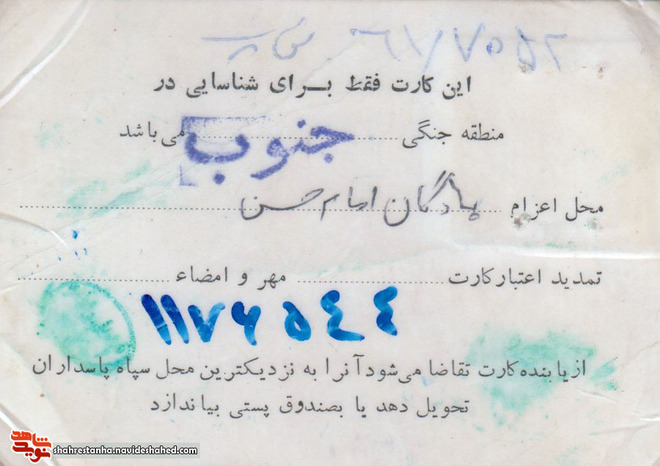 ۶۱/۷۵۵۲
این کارت فقط برای شناسایی در
منطقه جنگی جنوب می باشد
محل اعزام پادگان امام حسن
تمدید اعتبار کارت مهر و امضاء
۱۱۷۶۵۴۴
از یابنده کارت تقاضا می شود آنرا به نزدیکترین محل سپاه پاسداران
تحویل دهد یا بصندوق پستی بیاندازد
نوید شاهد shahrestanha.navideshahed.com